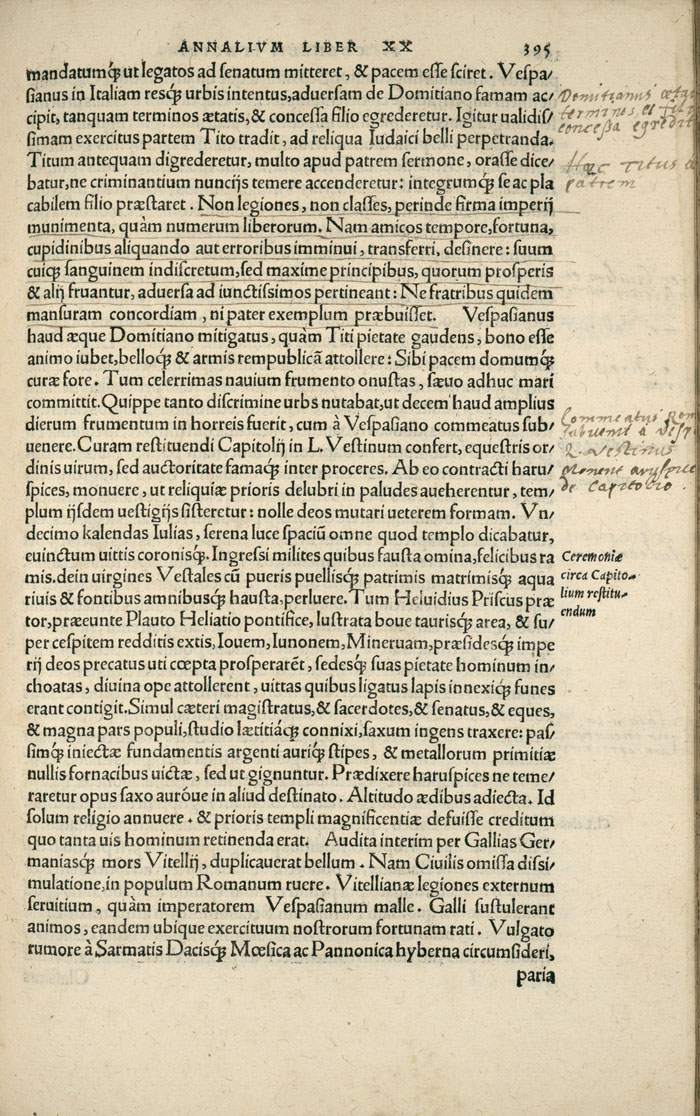 ANNALIVM LIBER XX 395
mandatumq́ꝫ ut legatos ad senatum mitteret, & pacem esse sciret. Vespa/
sianus in Italiam resq́ꝫ urbis intentus, aduersam de Domitiano famam ac/
cipit, tanquam terminos ætatis, & concessa filio egrederetur. Igitur ualidis/
simam exercitus partem Tito tradit, ad reliqua Iudaici belli perpetranda.
Titum antequam digrederetur, multo apud patrem sermone, orasse dice/
batur, ne criminantium nuncijs temere accenderetur: integrumq́ꝫ se ac pla
cabilem filio præstaret. Non legiones, non classes, perinde firma imperij
munimenta, quàm numerum liberorum. Nam amicos tempore, fortuna,
cupidinibus aliquando aut erroribus imminui, transferri, desinere: suum
cuiq́ꝫ sanguinem indiscretum, sed maxime principibus, quorum prosperis
& alij fruantur, aduersa ad iunctissimos pertineant: Ne fratribus quidem
mansuram concordiam, ni pater exemplum præbuisset. Vespasianus
haud æque Domitiano mitigatus, quàm Titi pietate gaudens, bono esse
animo iubet, belloq́ꝫ & armis rempublicã attollere: Sibi pacem domumq́ꝫ
curæ fore. Tum celerrimas nauium frumento onustas, sæuo adhuc mari
committit. Quippe tanto discrimine urbs nutabat, ut decem haud amplius
dierum frumentum in horreis fuerit, cum à Vespasiano commeatus sub/
uenere. Curam restituendi Capitolij in L. Vestinum confert, equestris or/
dinis uirum, sed auctoritate famaq́ꝫ inter proceres. Ab eo contracti haru/
spices, monuere, ut reliquiæ prioris delubri in paludes aueherentur, tem/
plum ijsdem uestigijs sisteretur: nolle deos mutari ueterem formam. Vn/
decimo kalendas Iulias, serena luce spaciũ omne quod templo dicabatur,
euinctum uittis coronisq́ꝫ. Ingressi milites quibus fausta omina, felicibus ra
mis. dein uirgines Vestales cũ pueris puellisq́ꝫ patrimis matrimisq́ꝫ aqua
riuis & fontibus amnibusq́ꝫ hausta, perluere. Tum Heluidius Priscus præ
tor, præeunte Plauto Heliatio pontifice, lustrata boue taurisq́ꝫ area, & su/
per cespitem redditis extis, Iouem, Iunonem, Mineruam, præsidesq́ꝫ impe
rij deos precatus uti cœpta prosperarẽt, sedesq́ꝫ suas pietate hominum in/
choatas, diuina ope attollerent, uittas quibus ligatus lapis innexiq́ꝫ funes
erant contigit. Simul cæteri magistratus, & sacerdotes, & senatus, & eques,
& magna pars populi, studio lætitiáq́ꝫ connixi, saxum ingens traxere: pas/
simq́ꝫ iniectæ fundamentis argenti auriq́ꝫ stipes, & metallorum primitiæ
nullis fornacibus uictæ, sed ut gignuntur. Prædixere haruspices ne teme/
raretur opus saxo auróue in aliud destinato. Altitudo ædibus adiecta. Id
solum religio annuere. & prioris templi magnificentiæ defuisse creditum
quo tanta uis hominum retinenda erat. Audita interim per Gallias Ger/
maniasq́ꝫ mors Vitellij, duplicauerat bellum. Nam Ciuilis omissa dissi/
mulatione, in populum Romanum ruere. Vitellianæ legiones externum
seruitium, quàm imperatorem Vespasianum malle. Galli sustulerant
animos, eandem ubique exercituum nostrorum fortunam rati. Vulgato
rumore à Sarmatis Dacisq́ꝫ Mœsica ac Pannonica hyberna circumsideri,
paria
Domitianus
terminos et
concessa
Hæc Titus
patrem
Commeatus
subuenit à
Vestinus
Monent
de Capitolio.
Ceremoniæ
circa Capito-
lium restitu-
endum